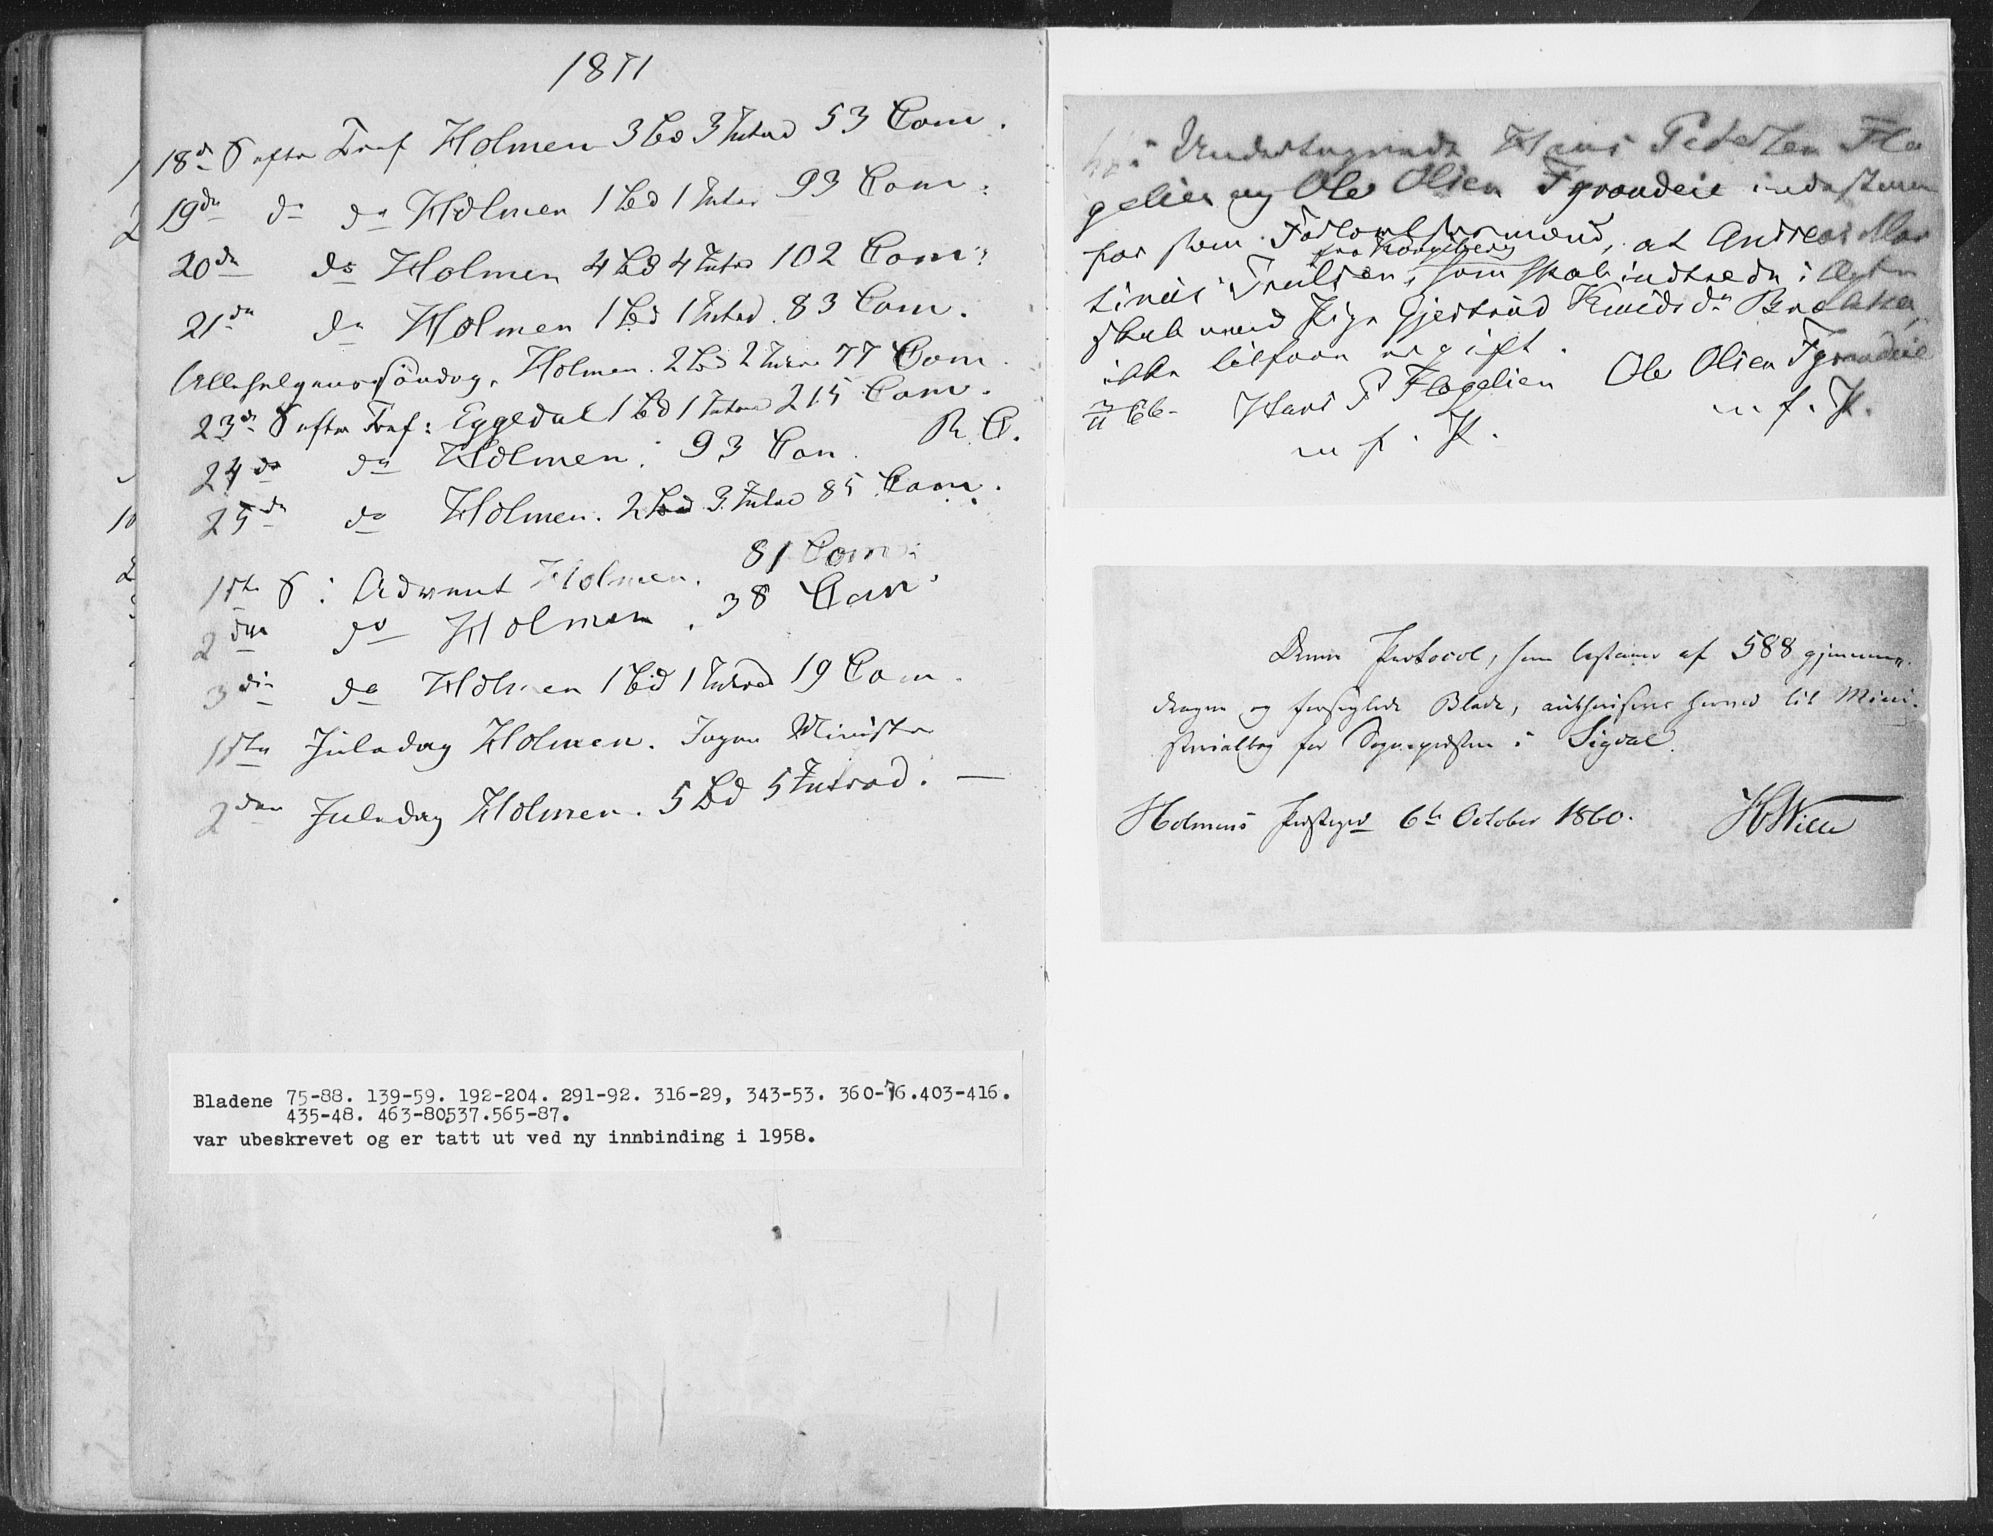 1871
18de S efter Tref Holmen 3 Bd 3 Introd 53 Com.
19de do do Holmen 1 Bd 1 Introd 93 Com.
20de do Holmen 4 Bd 4 Introd 102 Com.
21de do Holmen 1 Bd 1 Introd. 83 Com.
Allehelgens Söndag. Holmen. 2 Bd 2 Introd 77 Com.
23de S efter Tref: Eggedal 1 Bd 1 Introd 215 Com.
24de do Holmen. 93 Con.
25de do Holmen. 2 Bd 3 Introd 85 Com.
1ste S. i Advent Holmen. 81 Com.
2den do Holmen. 38 Com
3die do Holmen 1 Bd 1 Introd 19 Com.
1ste Juledag Holmen. Ingen Ministr
2den Juledag Holmen. 5 Bd 5 Introd. —
Bladene 75-88. 139-59. 192-204. 291-92. 316-29, 343-53. 360-76.403-416.
435-48. 463-80537.565-87.
var ubeskrevet og er tatt ut ved ny innbinding i 1958.
Undertegnede Hans Pedersen Fla
gelien og Ole Olsen Tgrandeie indestaaer
her som Forlovelsesmænd, at Andreas Mar
fra Kongsberg
tinius Trulsen, som skal indtræde i Ægte
skab med Pige Gjertrud Knudsdr Brekke,
ikke tilforn er gift.
Hans P Flagelien Ole Olsen Tgrandeie
m. f. P. m. f. P.
Denne Protocol, som bestaaer af 588 gjennem-
dragne og forseglede Blade, authoriseres herved til Mini-
sterialbog for Sognepresten i Sigdal.
Holmens Prestegd 6te October 1860. HWille